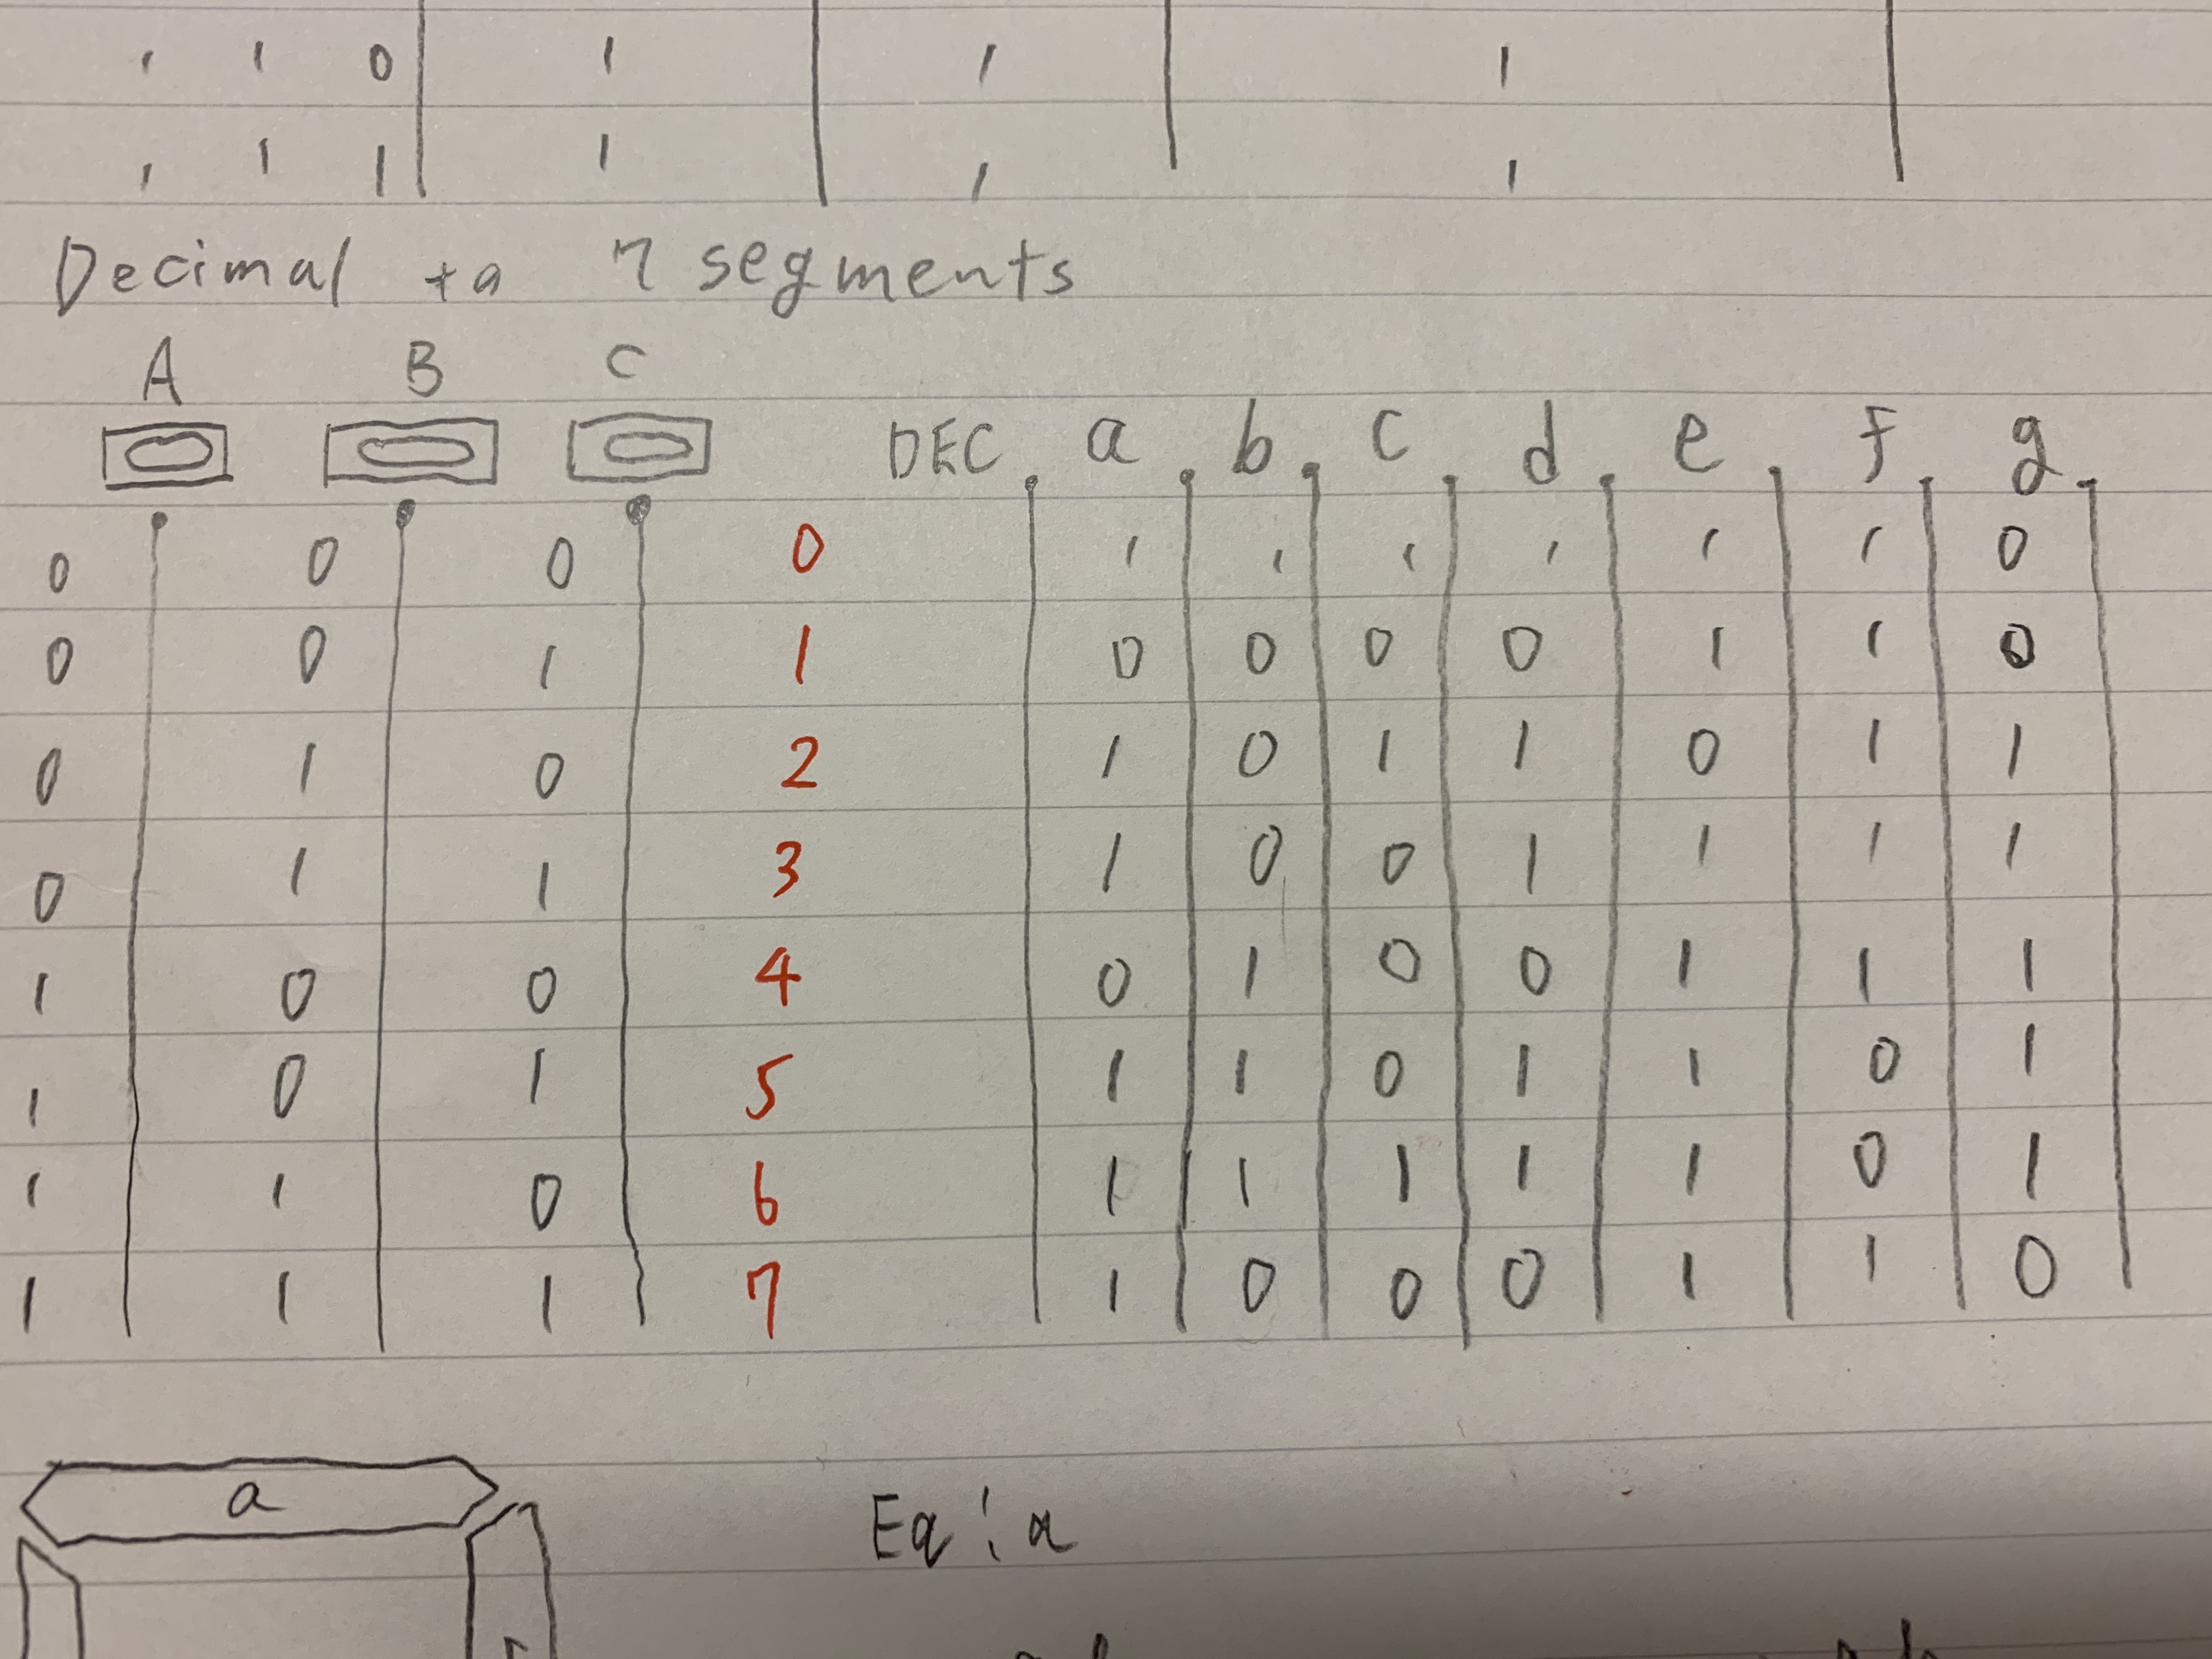 1 1 0 1 1 1
1 1 1 1 1 1
Decimal to 7 segments
A B C
DEC a b c d e f g
0 0 0 0 1 1 1 1 1 1 0
0 0 1 1 0 0 0 0 1 1 0
0 1 0 2 1 0 1 1 0 1 1
0 1 1 3 1 0 0 1 1 1 1
1 0 0 4 0 1 0 0 1 1 1
1 0 1 5 1 1 0 1 1 0 1
1 1 0 6 1 1 1 1 1 0 1
1 1 1 7 1 0 0 0 1 1 0
a
Eq: a